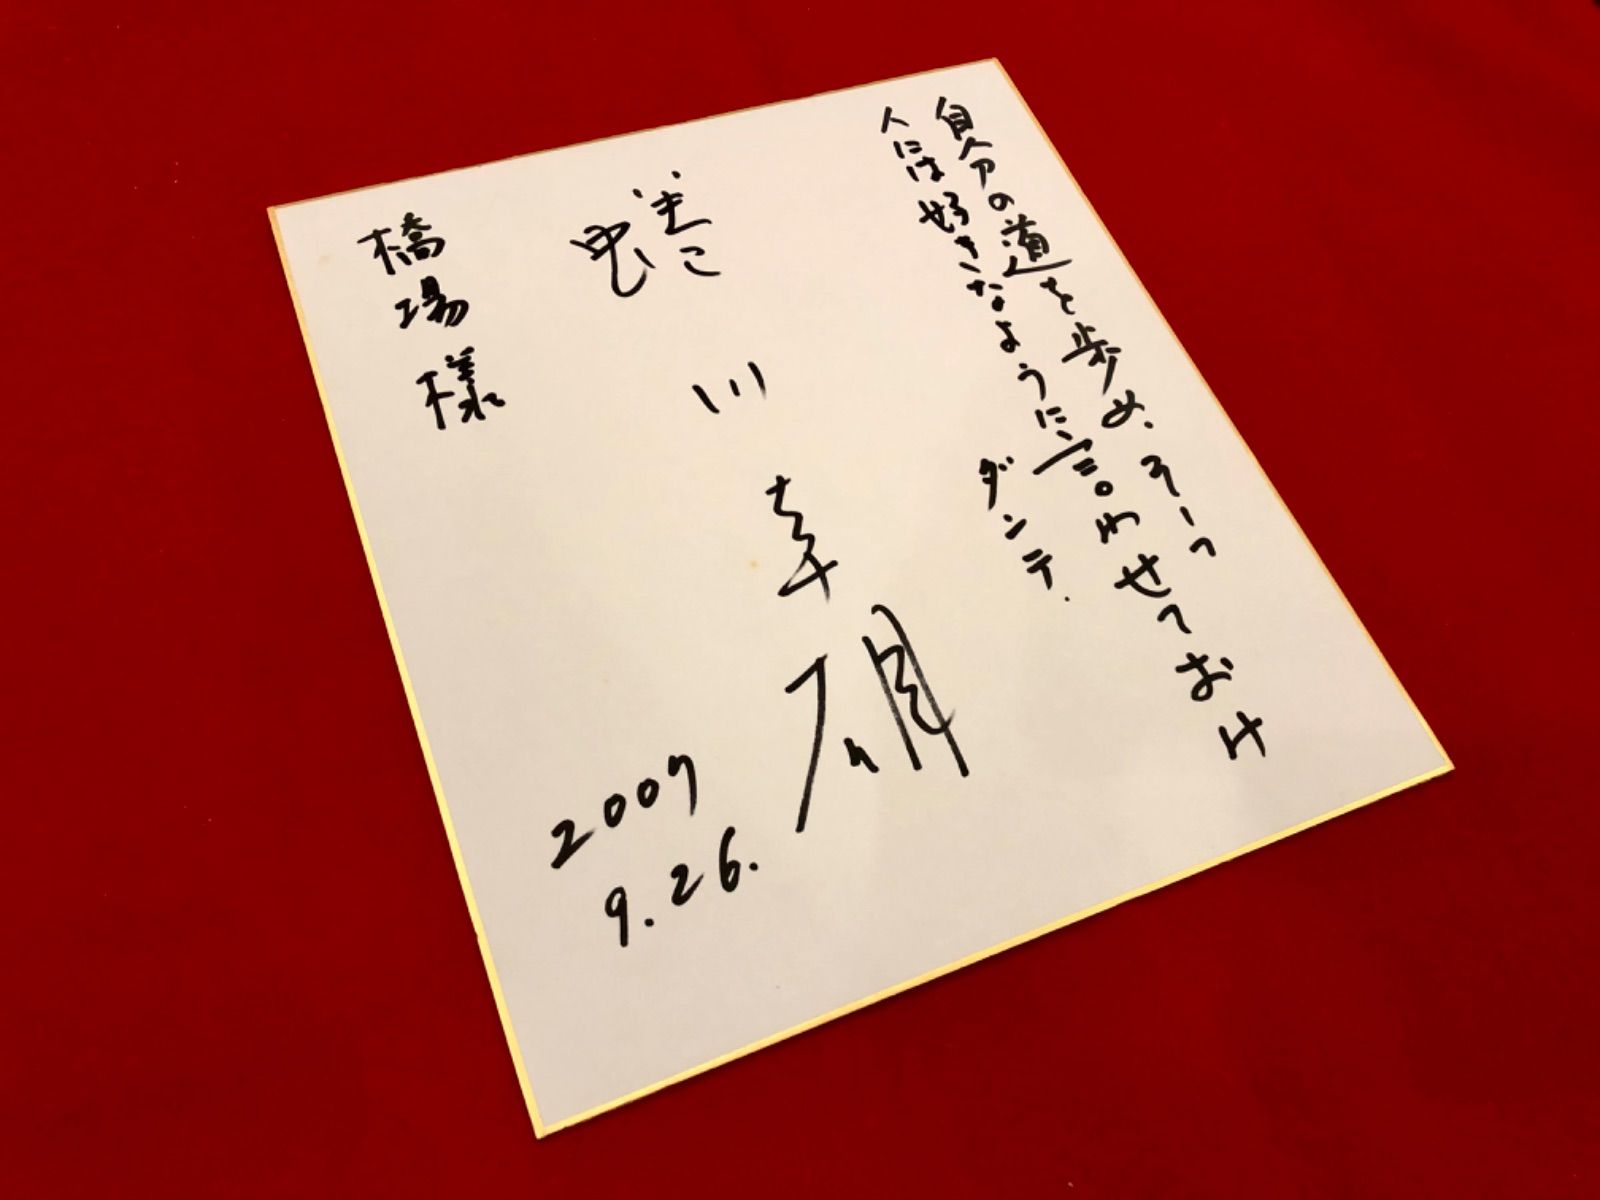 自分の道を歩め、そして
人には好きなように言わせておけ
ダンテ.
蜷川幸雄
2007
9.26.
橋場様